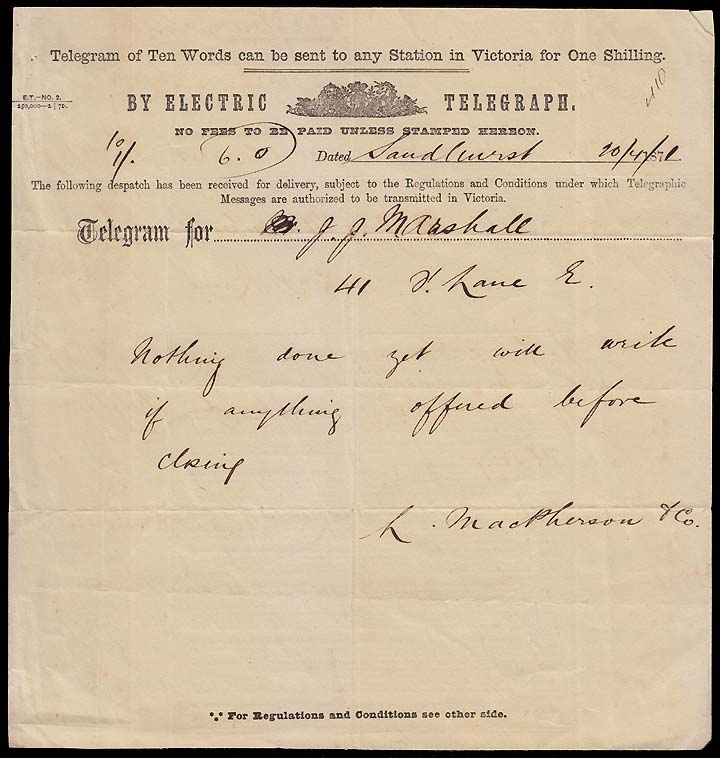 Telegram of Ten Words can be sent to any Station in Victoria for One Shilling.
410
E.T.—NO. 2.
BY ELECTRIC TELEGRAPH.
NO FEES TO BE PAID UNLESS STAMPED HEREON.
10/1/. 6.0 Dated Sandhurst 187
The following despatch has been received for delivery, subject to the Regulations and Conditions under which Telegraphic
Messages are authorized to be transmitted in Victoria.
Telegram for J. J. Marshall
41 Lane E.
Nothing done yet will write
if anything offered before
closing
L. MacPherson & Co.
For Regulations and Conditions see other side.